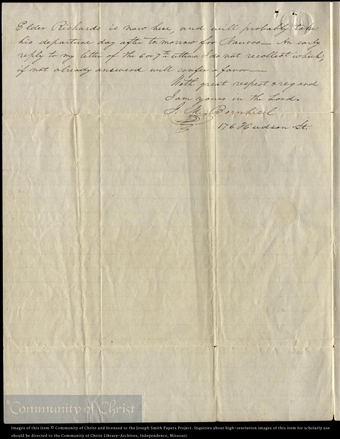 Elder Richards is now here, and will probably take
his departure day after tomorrow for Nauvoo. An early
reply to my letter of the 6 or 7th ultimo I do not recollect which,
if not already answered will confer a favor
With great respect & regard
I am yours in the Lord.
J. M. Bernhisel
176 Hudson St.
Community of Christ
Images of this item © Community of Christ and licensed to the Joseph Smith Papers Project. Inquiries about high-resolution images of this item for scholarly use
should be directed to the Community of Christ Library-Archives, Independence, Missouri.